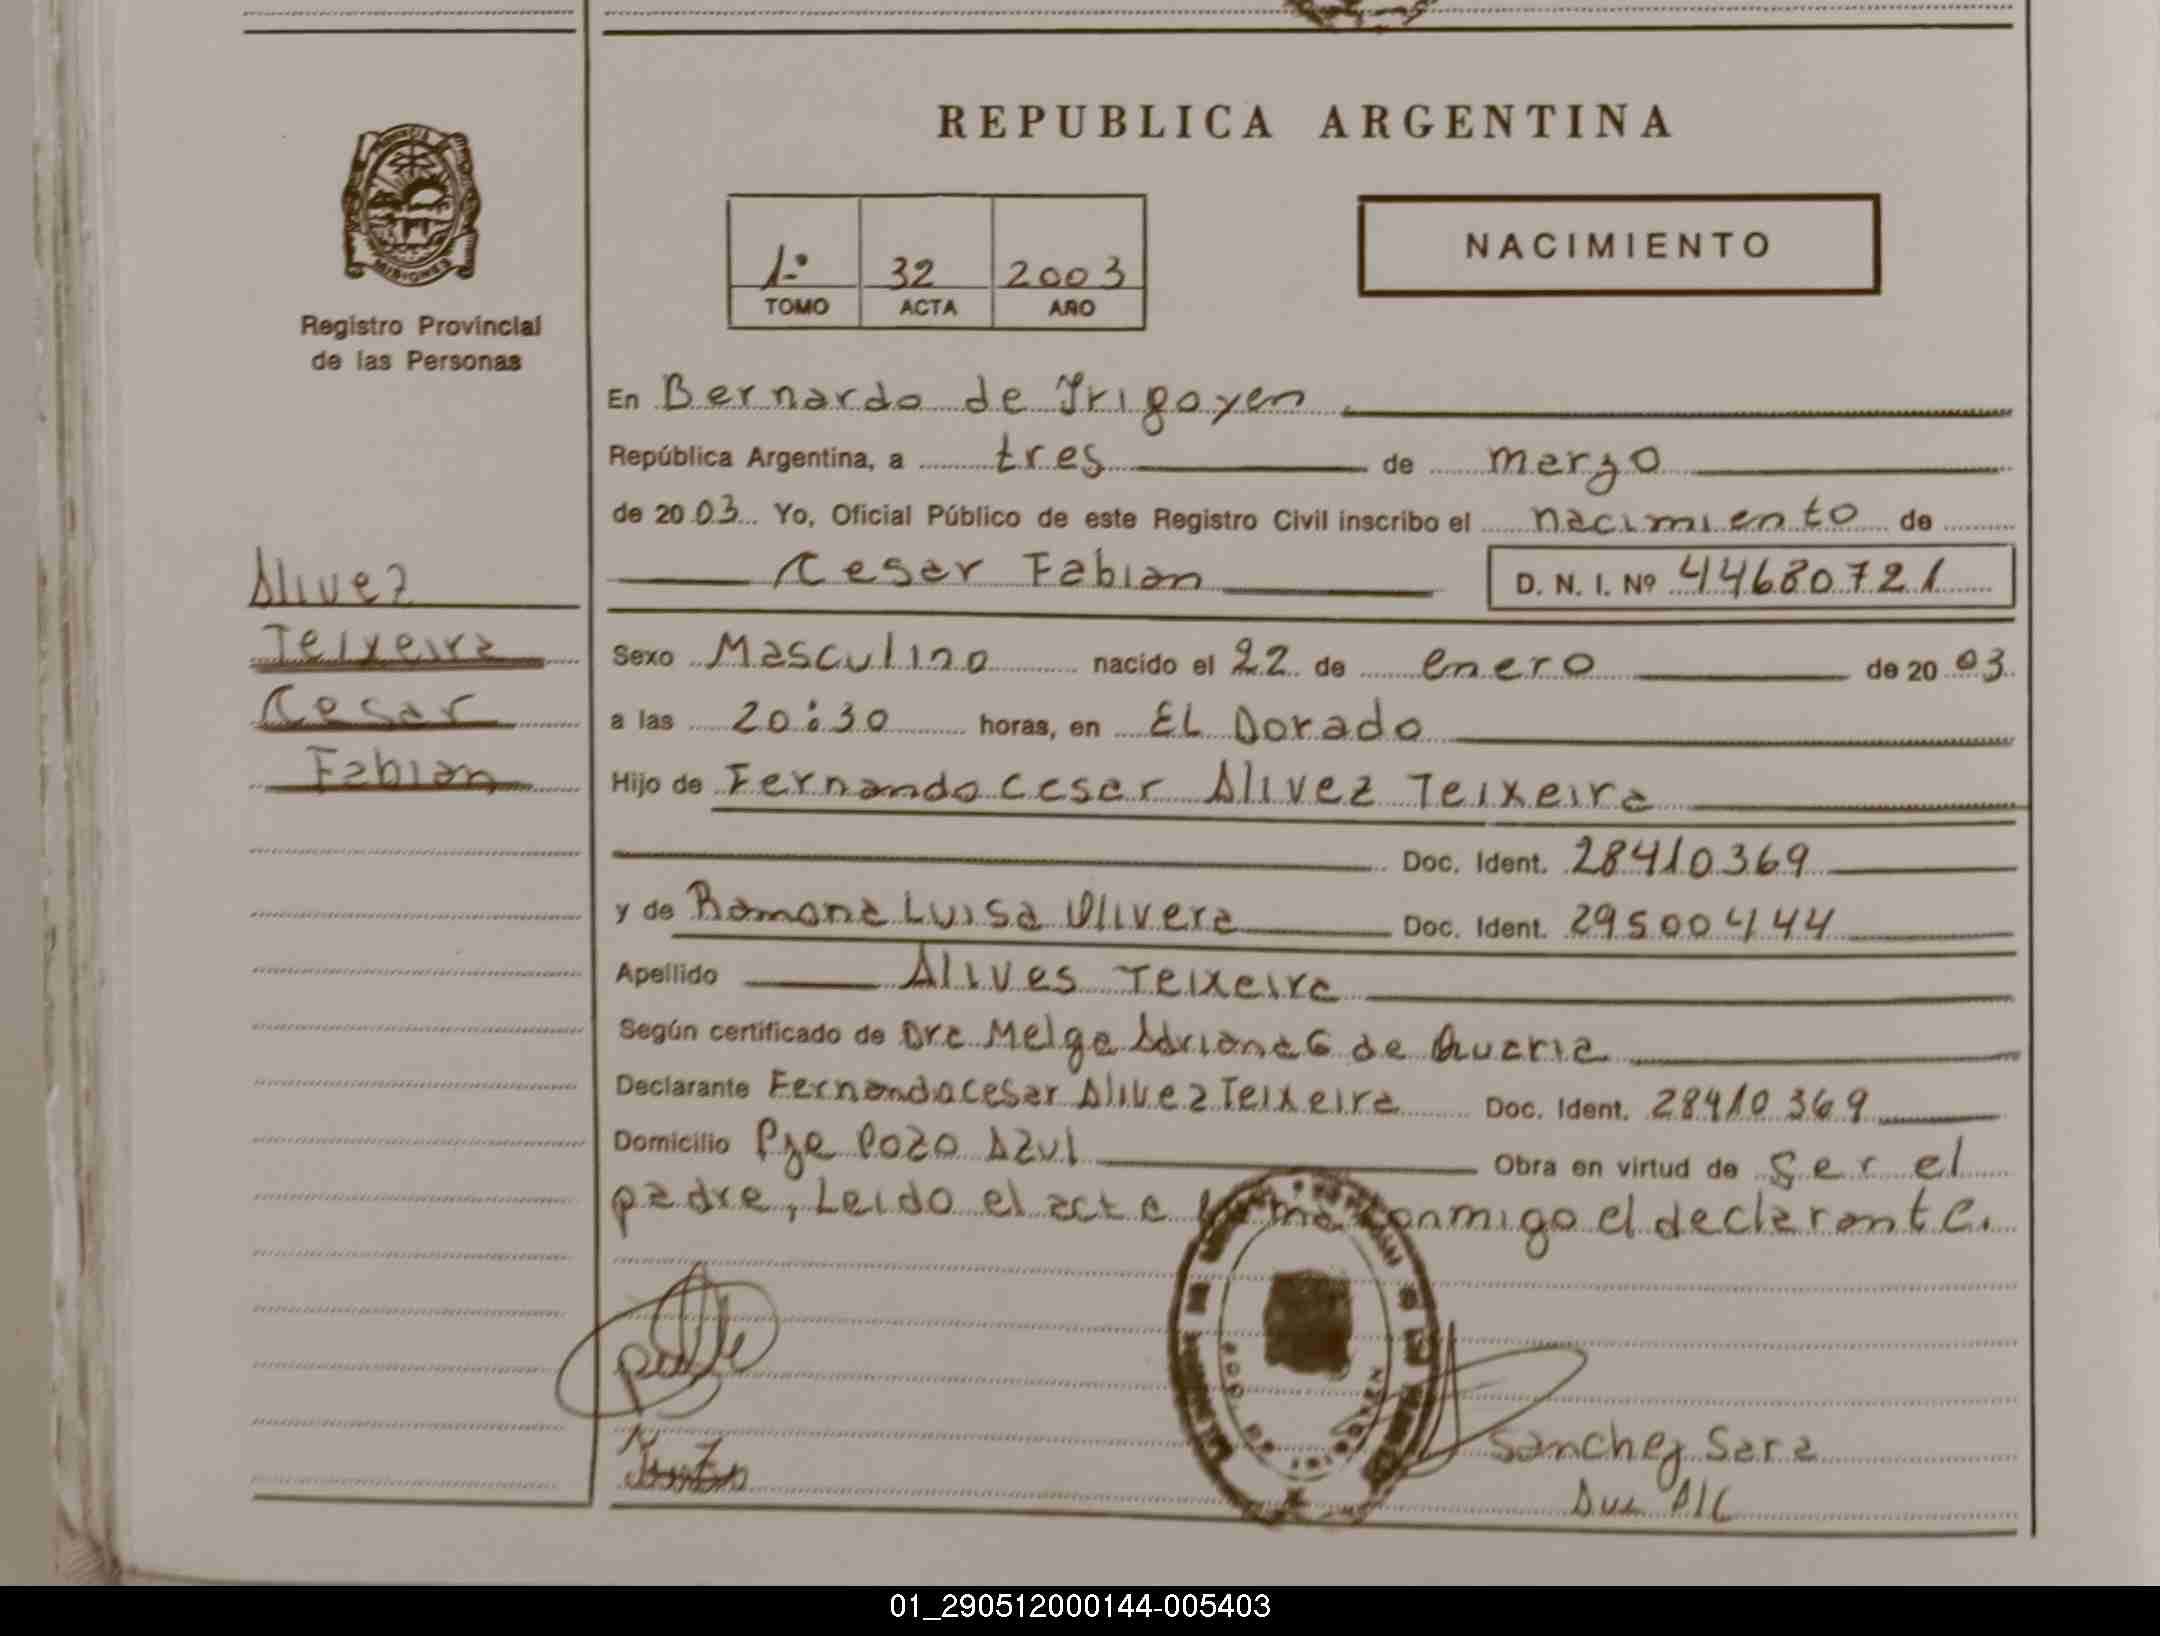 REPUBLICA ARGENTINA
PROVINCIA
MISIONES
Registro Provincial
de las Personas
1º 32 2003
TOMO ACTA AÑO
NACIMIENTO
En Bernardo de Yrigoyen
República Argentina, a tres de marzo
de 2003 Yo, Oficial Público de este Registro Civil inscribo el nacimiento de
Cesar Fabian D. N. I. Nº 44680721
Alivez
Teixeira
Cesar
Fabian
Sexo Masculino nacido el 22 de enero de 20 03
a las 20:30 horas, en EL Dorado
Hijo de Fernando Cesar Alivez Teixeira
Doc. Ident. 28410369
y de Ramona Luisa Olivera Doc. Ident. 29500444
Apellido Alives Teixeira
Según certificado de Dra Melga Adriana G de
Declarante Fernando Cesar Alivez Teixeira Doc. Ident. 28410369
Domicilio Pje Pozo Azul Obra en virtud de ser el
padre, Leido el acta firma conmigo el declarante.
Sanchez Sara
01_290512000144-005403